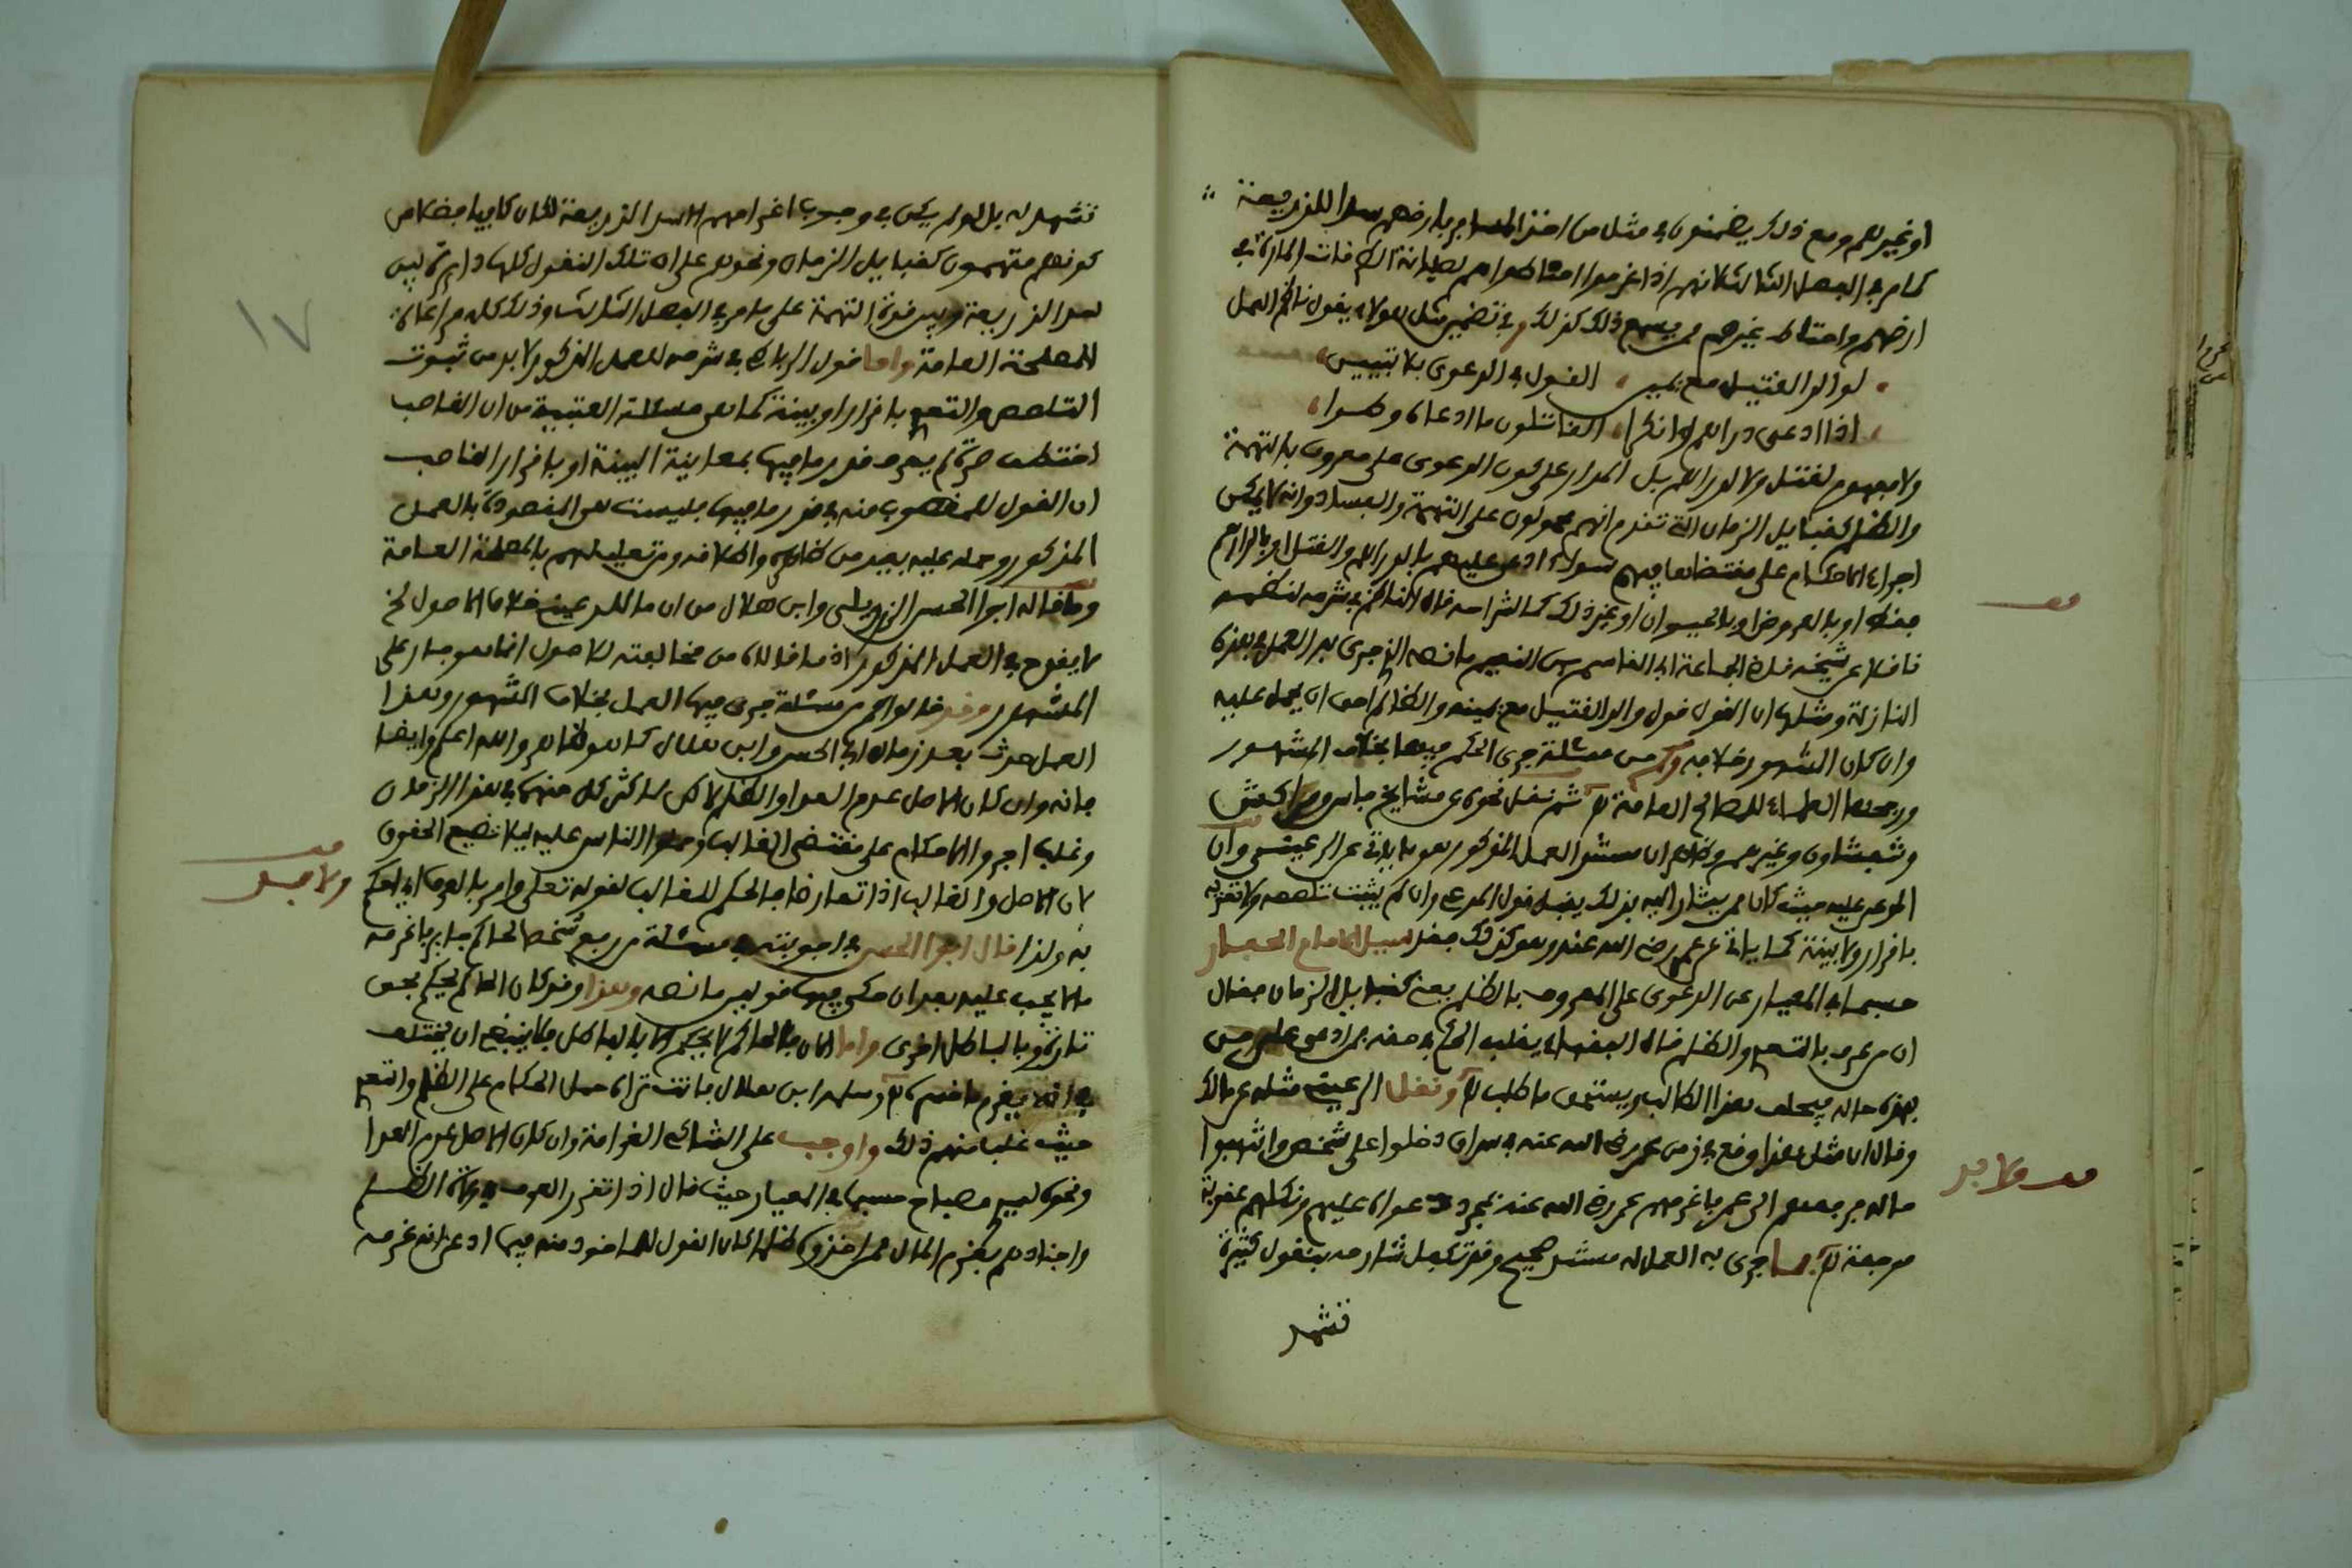 او غيرهم ومع ذلك يضمنون في مثل من اخذ المسافر بارضهم سدا للذريعة
كما مر في الفصل الثالث لانهم اذا غرموا احتاطوا هم لصيانة
ارضهم واحتاط غيرهم ممن يسمع ذلك كذلك وفي تضمين مثل هولاء يقول ناظم العمل
لوالد القتيل مع يمين القول في الدعوى بلا تبيين
اذا ادعى دراهم وانكرا القاتلون ما ادعاه وطرا
ولا مفهوم لقتل ولا لدراهم بل المدار على كون الدعوى على معروف بالتهمة
والظلم كقبايل الزمان التي تقدم انهم محمولون على التهمة والفساد وانه لا يمكن
اجراء الاحكام على مقتضاها فيهم سواء ادعى عليهم بالدراهم والقتل او بالدراهم
فقط او بالعروض او بالحيوان او غير ذلك كما لشراحه قال الناظم في شرحه لنظمه
ناقلا عن شيخه قاضي الجماعة ابي القاسم بن النعيم ما نصه الذي جرى به العمل في هذه
النازلة ومثلها ان القول قول والد القتيل مع يمينه والظالم احق ان يحمل عليه
وان كان المشهور خلافه وكم من مسئلة جرى الحكم فيها بخلاف المشهور
ورجحها العلماء للمصالح العامة ثم نقل نحوه عن مشايخ فاس ومراكش
وشفشاون وغيرهم وظاهر ان مستند العمل المذكور هو ما ياتي عن الرعيني وان
المدعى عليه حيث كان ممن يشار اليه بذلك يقبل قول المدعي وان لم يثبت تلصصه ولا تعديه
باقرار ولا بينة كما ياتي عن عمر رضي الله عنه وهو كذلك فقد سيل الامام الحفار
حسبما في المعيار عن الدعوى على المعروف بالظلم يعني كقبايل الزمان فقال
ان من عرف بالتعدي والظلم قال الفقهاء يغلب الحكم في حقه فمن ادعى على من
بهذه حاله فيحلف هذا الطالب ويستحق ما طلب ونقل الرعيني مثله عن مالك
وقال ان مثل هذا وقع في زمن عمر رضي الله عنه في سراق دخلوا على شخص وانتهبوا
ماله فرفعهم الى عمر فاغرمهم عمر رضي الله عنه بمجرد دعواه عليهم ونكلهم عقوبة
موجعة فما جرى به العمل له مستند صحيح وقد تكفل شارحه بنقول كثيرة
تشهد
تشهد له بل لو لم يكن في وجوب اغرامهم الا سد الذريعة لكان كافيا فضلا عن
كونهم متهمون كقبايل الزمان ونحوهم على ان تلك النقول كلها دايرة بين
سد الذريعة وبين قوة التهمة على ما مر في الفصل الثالث وذلك كله مراعاة
للمصلحة العامة واما قول الرباطي في شرحه للعمل المذكور لا بد من ثبوت
التلصص والتعدي باقرار او بينة كما هي مسئلة العتبية من ان الغاصب
اختطف صرة لم يعرف قدر ما فيها بمعاينة البينة او باقرار الغاصب
ان القول للمغصوب منه في قدر ما فيها فليست هي المقصودة بالعمل
المذكور وحمله عليه بعيد من ظاهره واطلاقه ومن تعليلهم بالمصلحة العامة
وما قاله ابو الحسن الزرويلي وابن هلال من ان ما للرعيني خلاف الاصول الخ
لا يقدح في العمل المذكور اذ ما قالاه من مخالفته للاصول انما هو جار على
المشهور وقد قالوا كم من مسئلة جرى فيها العمل بخلاف المشهور وهذا
العمل حدث بعد زمان ابي الحسن وابن هلال كما هو ظاهر والله اعلم وايضا
فانه وان كان الاصل عدم العدا والظلم لاكن لما كثر كل منهما في هذا الزمان
وغلبا اجروا الاحكام على مقتضى الغالب وحملوا الناس عليه ليلا تضيع الحقوق
لان الاصل والغالب اذا تعارضا فالحكم للغالب لقوله تعالى وامر بالعرف اي احكم
به ولذا قال ابو الحسن في اجوبته في مسئلة من رفع شخصا لحاكم جاير فاغرمه
ما لا يجب عليه بعد ان حكى فيها قولين ما نصه وهذا وقد كان الحاكم يحكم بحق
تارة وبالباطل اخرى واما الان فالحاكم لا يحكم الا بالباطل فلا ينبغي ان يختلف
في انه يغرم ما خسره وسلمه ابن هلال فانت تراه حمل الحكام على الظلم والتعدي
حيث غلبا منهم ذلك واوجب على الشاكي الغرامة وان كان الاصل عدم العدا
ونحوه لسيدي مصباح حسبما في المعيار حيث قال اذا تقرر العرف بولاة الظلم
واجنادهم بغرم المال ممن اخذوه ظلما كان القول للماخوذ منه فيما ادعى انه غرمه
قف
قف ولا بد
قف
ولا بد
١٧